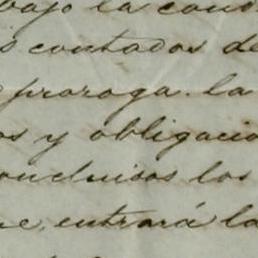 bajo la cond
s contados de
proroga la
os y obligacio
oncluisos los
ue, entrará la